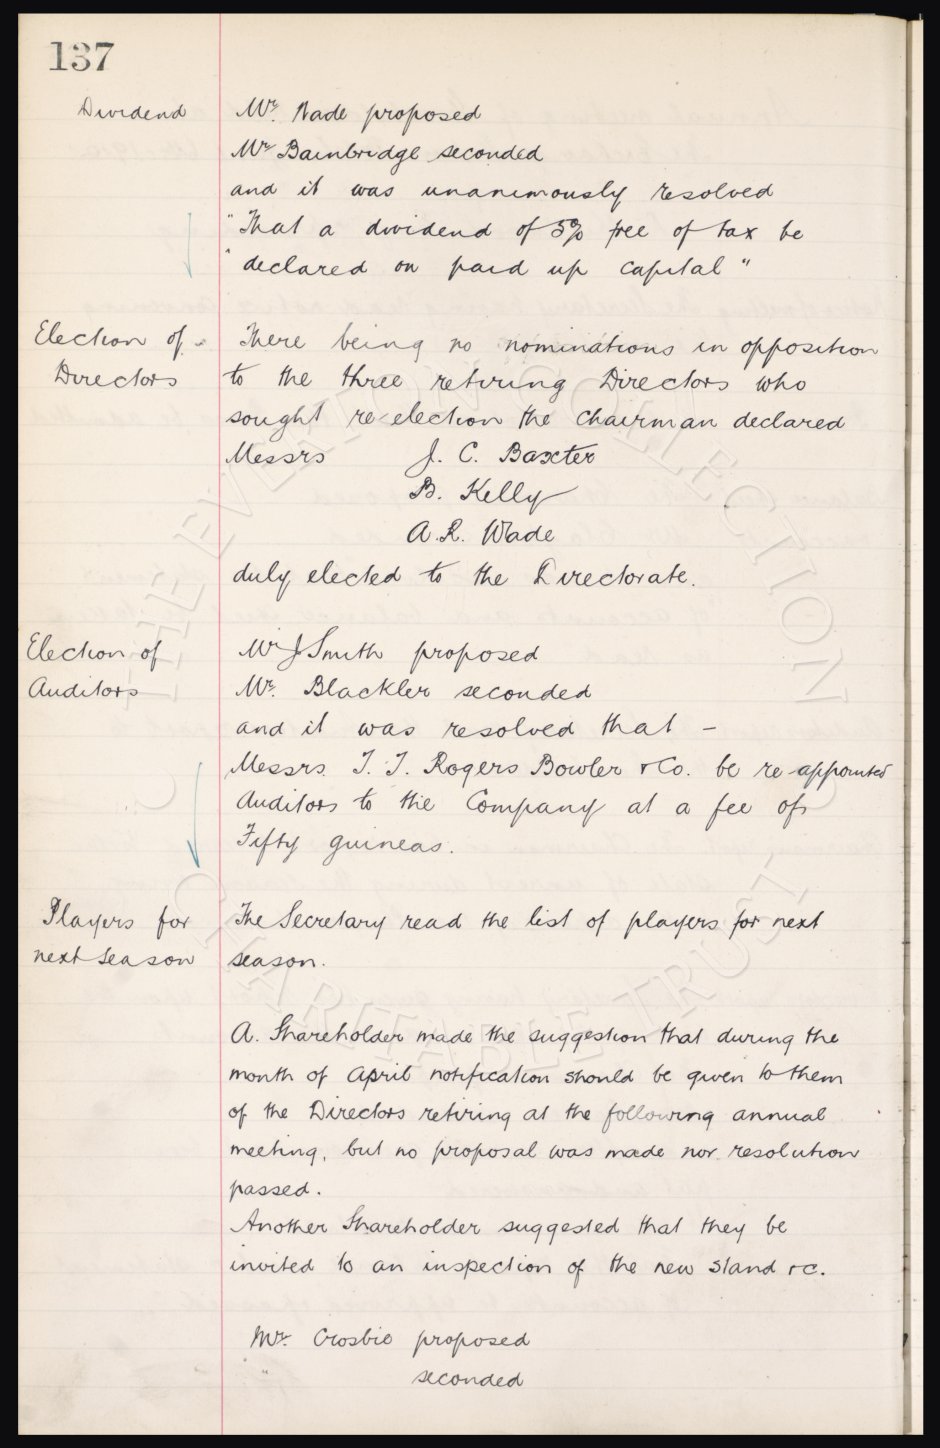 137
Dividend
Mr. Wade proposed
Mr Bainbridge seconded
and it was unanimously resolved
"That a dividend of 5% free of tax be
"declared on paid up capital"
Election of
Directors
There being no nominations in opposition
to the three retiring Directors who
sought re election the Chairman declared
Messrs J. C. Baxter
B. Kelly
A. R. Wade
duly elected to the Directorate.
Election of
Auditors
Mr J Smith proposed
Mr. Blackler seconded
and it was resolved that -
Messrs. T. T. Rogers Bowler & Co. be re-appointed
Auditors to the Company at a fee of
Fifty guineas.
Players for
next season
The Secretary read the list of players for next
season.
A. Shareholder made the suggestion that during the
month of April notification should be given to them
of the Directors retiring at the following annual
meeting, but no proposal was made nor resolution
passed.
Another Shareholder suggested that they be
invited to an inspection of the new stand &c.
Mr. Crosbie proposed
" seconded
THE EVERTON COLLECTION
CHARITABLE TRUST